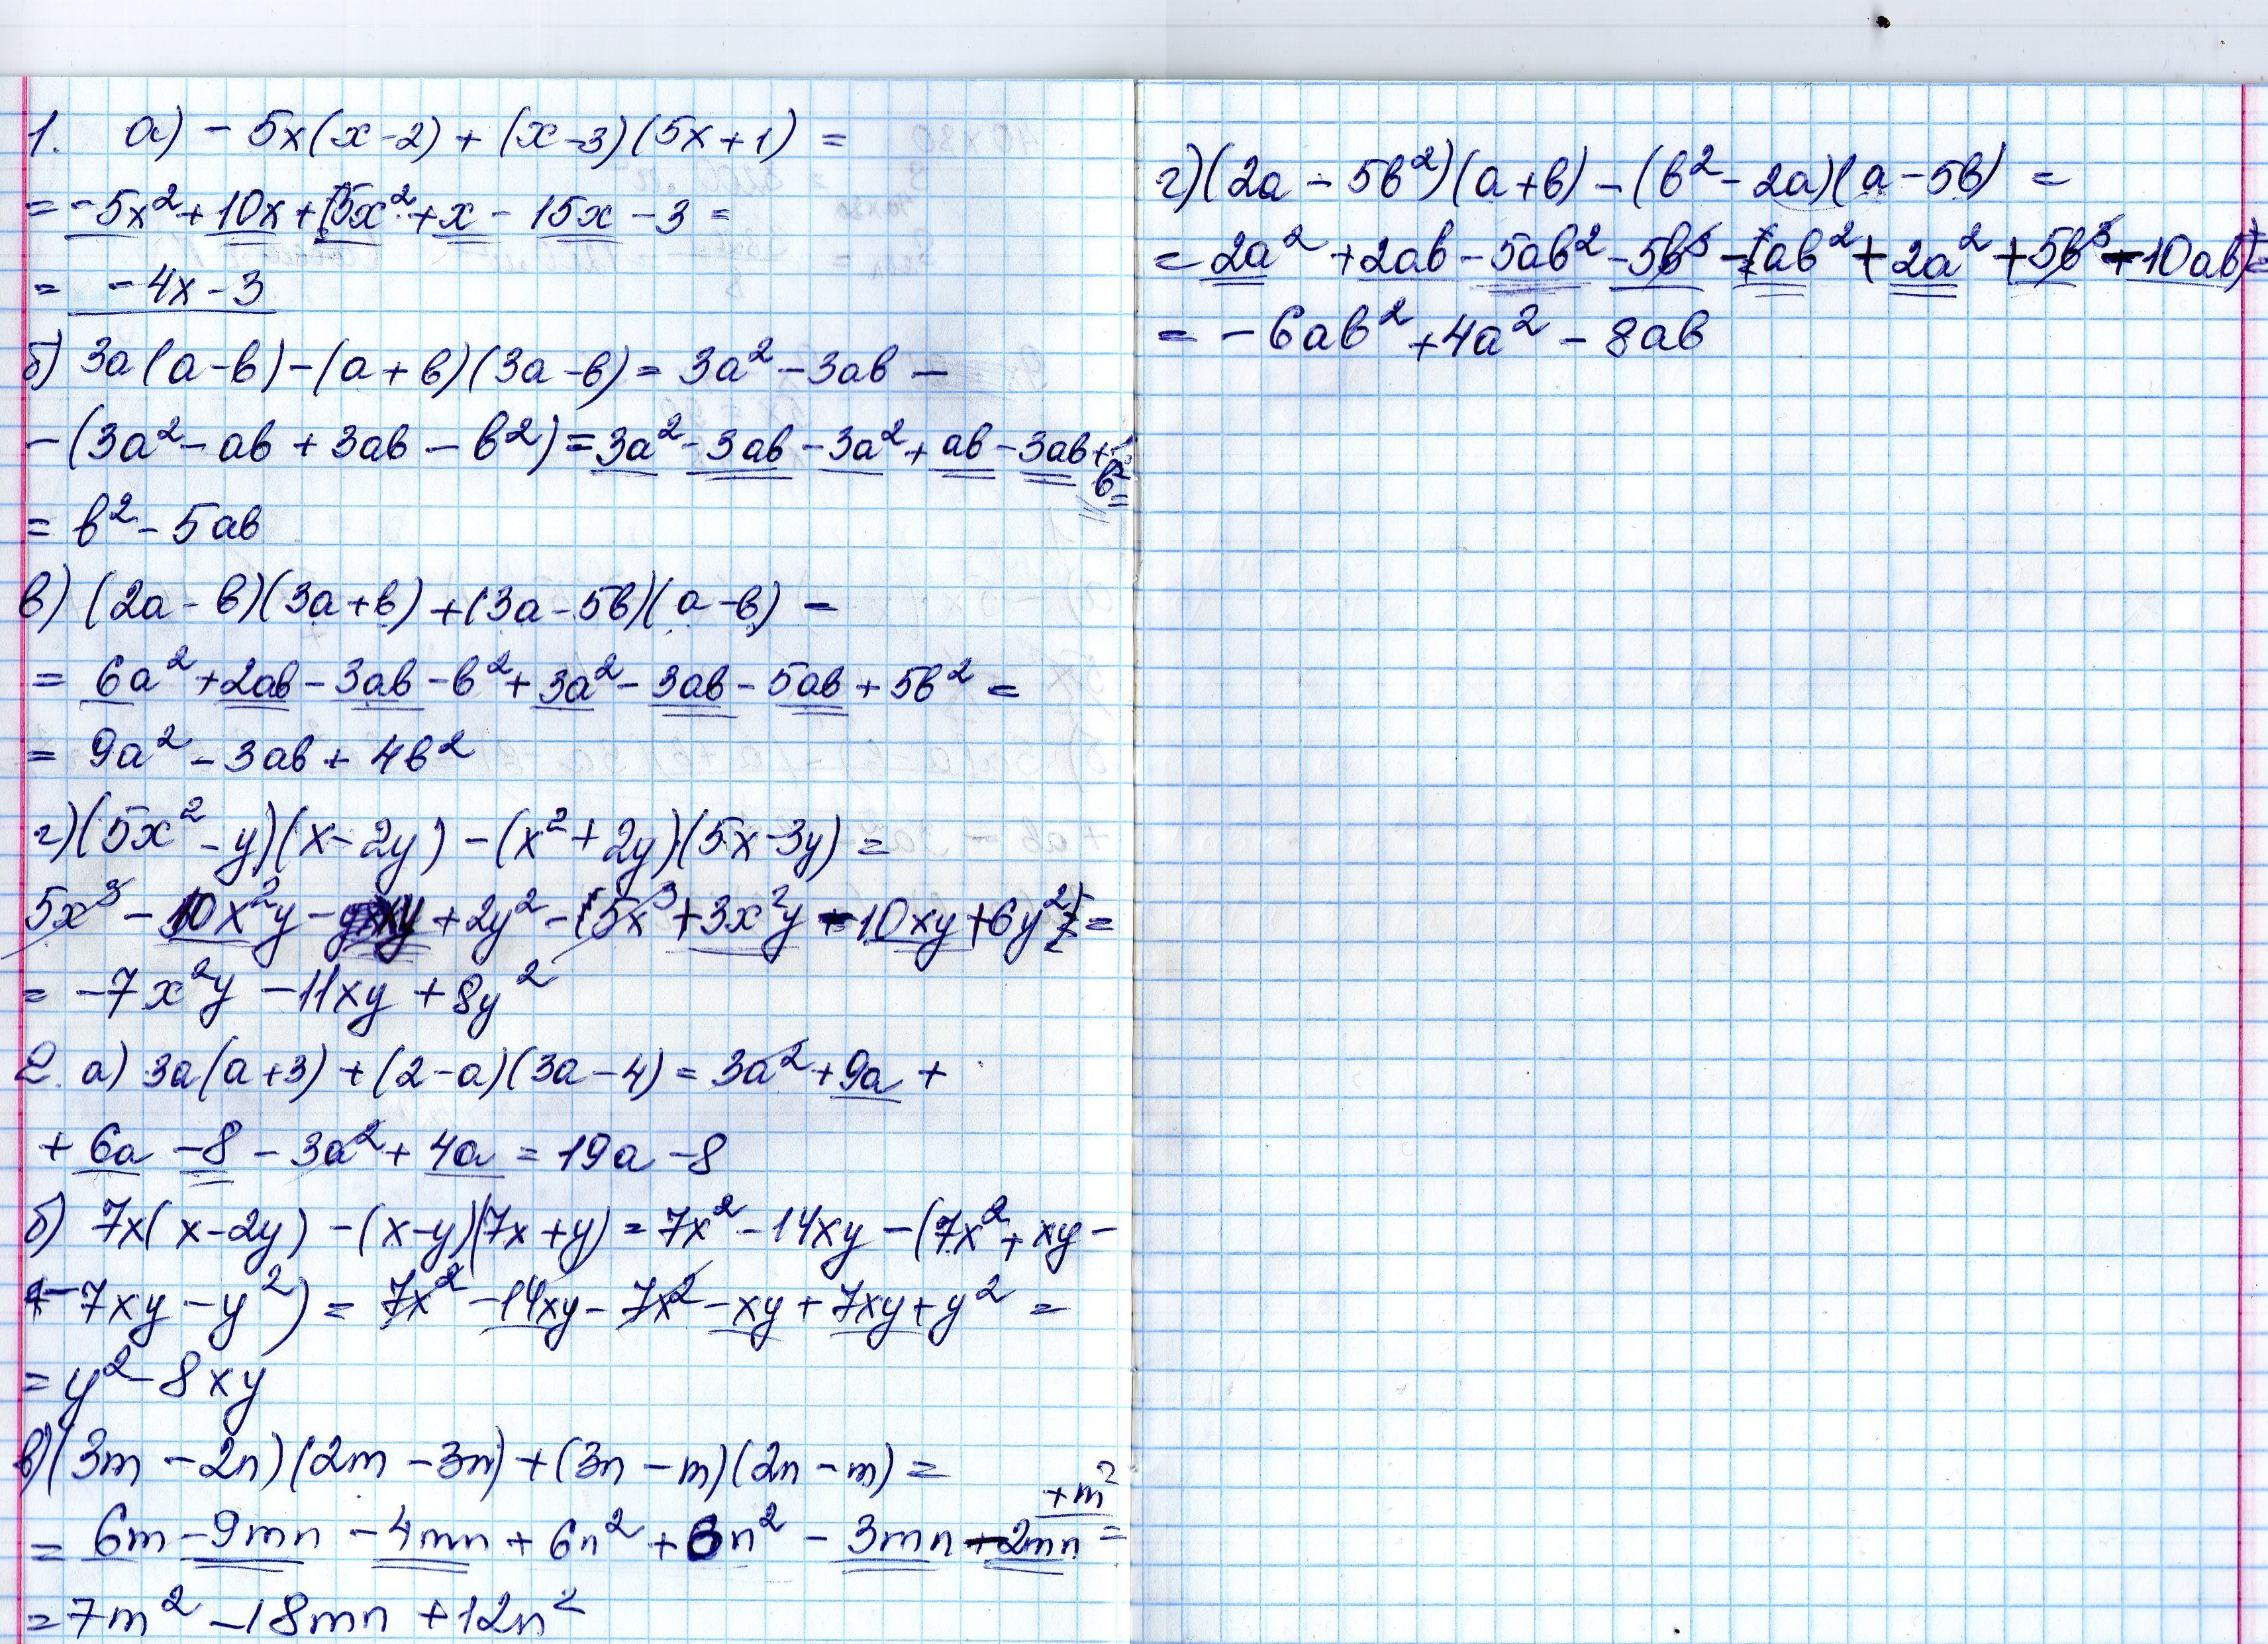 1. а) - 5x(x-2) + (x-3)(5x+1) =
= -5x² + 10x + 5x² + x - 15x - 3 =
= -4x - 3
б) 3a(a-b) - (a+b)(3a-b) = 3a² - 3ab -
- (3a² - ab + 3ab - b²) = 3a² - 3ab - 3a² + ab - 3ab +
b² =
= b² - 5ab
в) (2a - b)(3a+b) + (3a-5b)(a-b) -
= 6a² + 2ab - 3ab - b² + 3a² - 3ab - 5ab + 5b² =
= 9a² - 3ab + 4b²
г) (5x² - y)(x - 2y) - (x² + 2y)(5x - 3y) =
5x³ - 10x²y - xy + 2y² - 5x³ + 3x²y - 10xy + 6y² =
= -7x²y - 11xy + 8y²
2. а) 3a(a+3) + (2-a)(3a-4) = 3a² + 9a +
+ 6a - 8 - 3a² + 4a = 19a - 8
б) 7x(x-2y) - (x-y)(7x+y) = 7x² - 14xy - (7x² + xy -
- 7xy - y²) = 7x² - 14xy - 7x² - xy + 7xy + y² =
= y² - 8xy
в) (3m - 2n)(2m - 3n) + (3n - m)(2n - m) =
+ m²
= 6m - 9mn - 4mn + 6n² + 6n² - 3mn - 2mn =
= 7m² - 18mn + 12n²
г) (2a - 5b²)(a+b) - (b² - 2a)(a - 5b) =
= 2a² + 2ab - 5ab² - 5b³ - ab² + 2a² + 5b³ - 10ab =
= - 6ab² + 4a² - 8ab